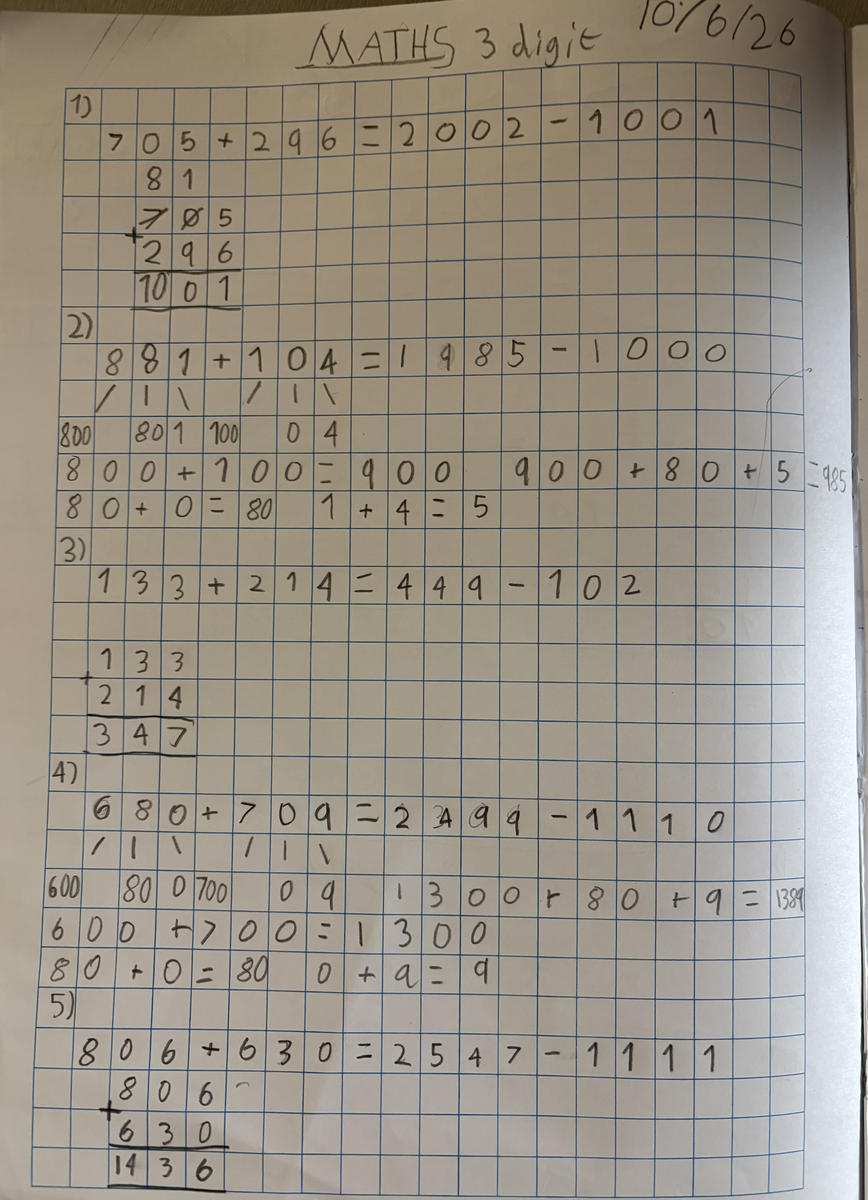 MATHS 3 digit 10/6/26
1)
705+296=2002-1001
81
705
+
296
1001
2)
881+104=1985-1000
/ | \ / | \
800 80 1 100 0 4
800+100=900 900+80+5=985
80+0=80 1+4=5
3)
133+214=449-102
133
+
214
347
4)
680+709=2499-1110
/ | \ / | \
600 80 0 700 0 9 1300+80+9=1389
600+700=1300
80+0=80 0+9=9
5)
806+630=2547-1111
806
+
630
1436